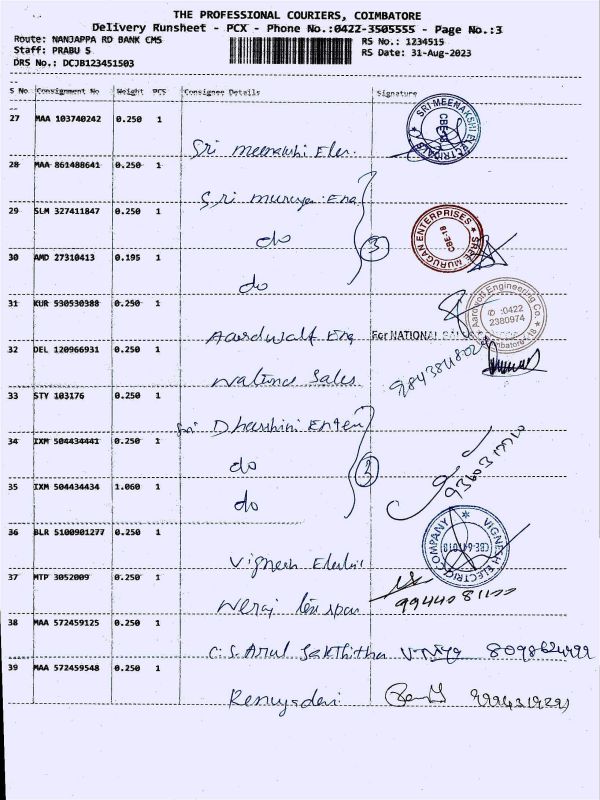 THE PROFESSIONAL COURIERS, COIMBATORE
Delivery Runsheet - PCX - Phone No.:0422-3505555 - Page No.:3
Route: NANJAPPA RD BANK CMS
RS No.: 1234515
Staff: PRABU S
RS Date: 31-Aug-2023
DRS No.: DCJB123451503
S No Consignment No Weight PCS Consignee Details Signature
27 MAA 103740242 0.250 1
Sri meenakshi Elec.
SRI MEENAKSHI ELECTRICALS
28 MAA 861488641 0.250 1
Sri muruga Eng
29 SLM 327411847 0.250 1
do
3
SREE MURUGAN ENTERPRISES
CBE-18
30 AMD 27310413 0.195 1
do
31 KUR 530530388 0.250 1
Aardwolf Eng
Aardwolf Engineering Co.
✆ :0422
2380974
For NATIONAL
32 DEL 120966931 0.250 1
Sales
33 STY 103176 0.250 1
Sri Dharshini Enter
34 IXM 504434441 0.250 1
do
3
35 IXM 504434434 1.060 1
do
36 BLR 5100901277 0.250 1
Vignesh Electric
VIGNESH ELECTRIC COMPANY
37 MTP 3052009 0.250 1
9944081100
38 MAA 572459125 0.250 1
C.S. Arul Sakthitha
39 MAA 572459548 0.250 1
Renugadevi